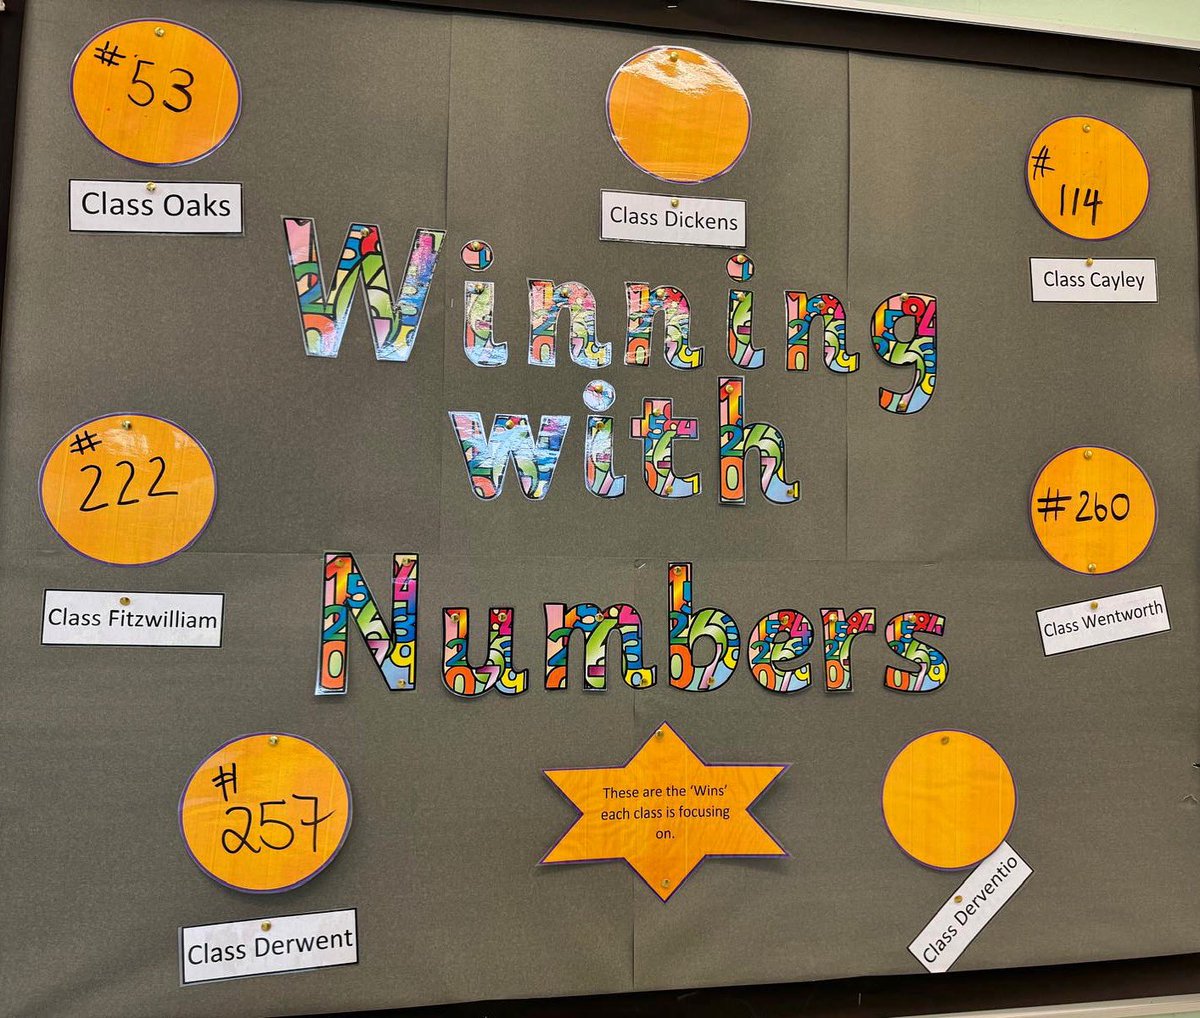 #53
Class Oaks
Class Dickens
#
114
Class Cayley
Winning
with
Numbers
#
222
Class Fitzwilliam
#260
Class Wentworth
#
257
Class Derwent
These are the ‘Wins’
each class is focusing
on.
Class Derventio